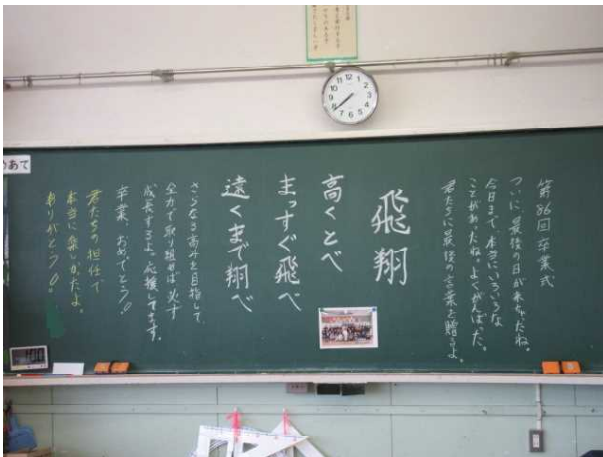 第86回 卒業式
ついに、最後の日が来ちゃったね。
今日まで、本当にいろいろな
ことがあったね。よくがんばった。
君たちに最後の言葉を贈るよ。
飛翔
高くとべ
まっすぐ飛べ
遠くまで翔べ
さらなる高みを目指して
全力で取り組めば必ず
成長するよ。応援してます。
卒業、おめでとう!!
君たちの担任で
本当に楽しかったよ。
ありがとう!!
めあて
12
1
2
3
4
5
6
7
8
9
10
11